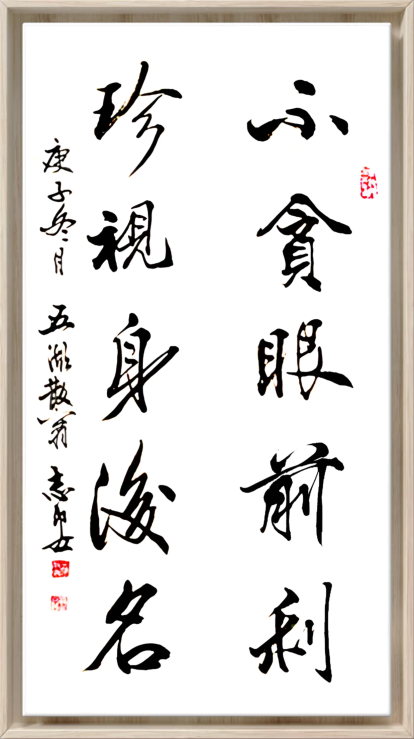 不貪眼前利
珍視身後名
庚子冬月 五湖散翁 志安